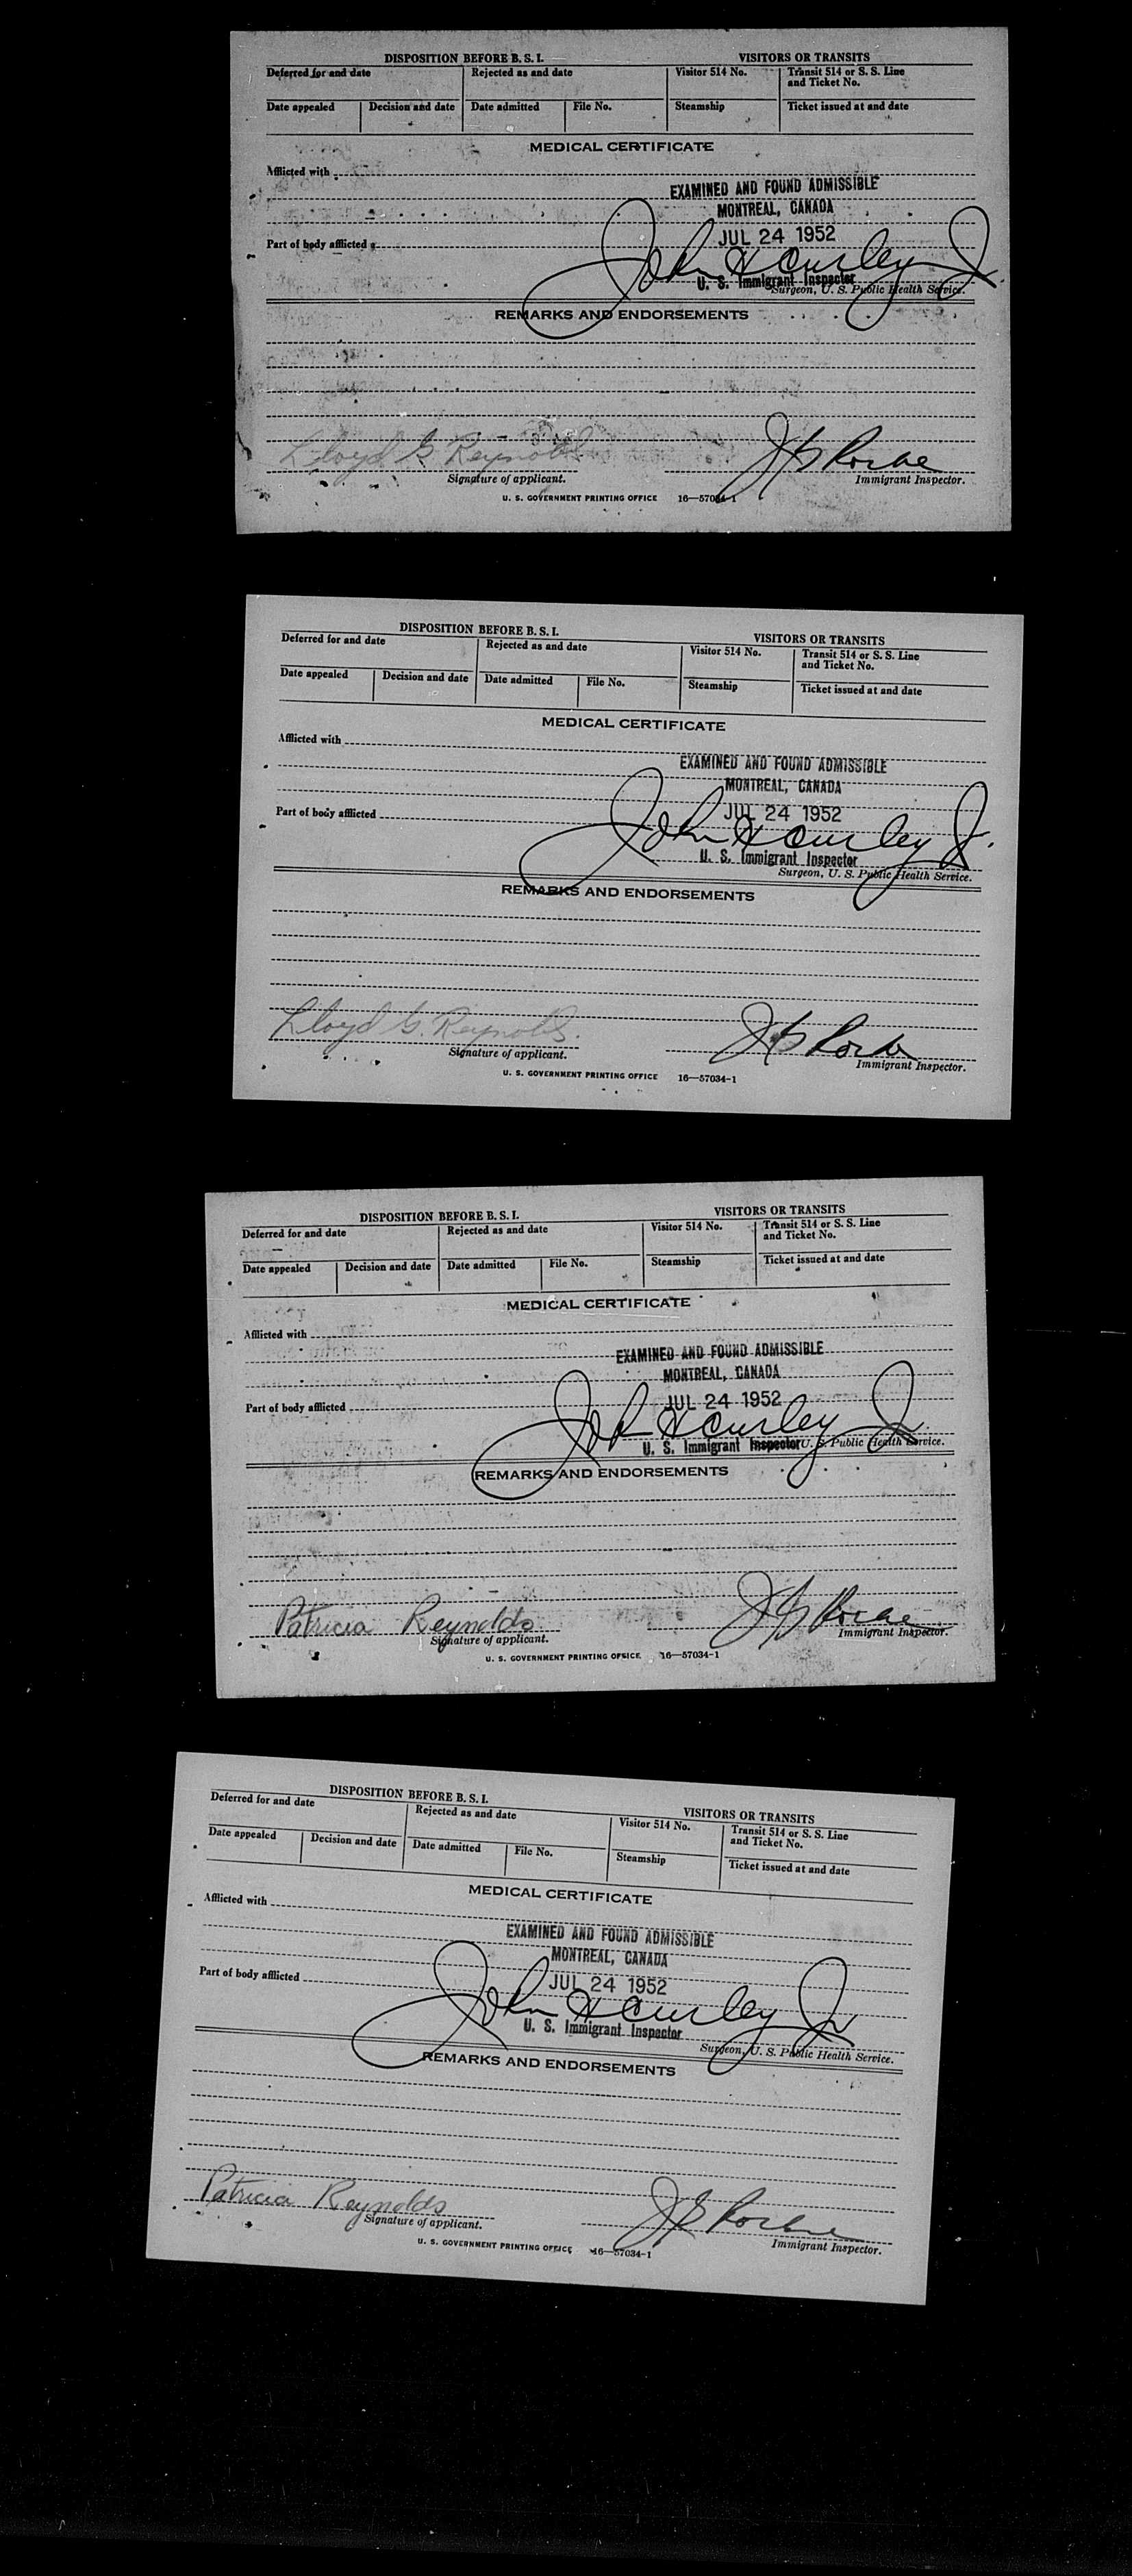 DISPOSITION BEFORE B. S. I. VISITORS OR TRANSITS
Deferred for and date Rejected as and date Visitor 514 No. Transit 514 or S. S. Line
and Ticket No.
Date appealed Decision and date Date admitted File No. Steamship Ticket issued at and date
MEDICAL CERTIFICATE
Afflicted with
EXAMINED AND FOUND ADMISSIBLE
MONTREAL, CANADA
Part of body afflicted JUL 24 1952
John H Curley Jr
U. S. Immigrant Inspector
Surgeon, U. S. Public Health Service.
REMARKS AND ENDORSEMENTS
Lloyd G Reynolds
Signature of applicant. Immigrant Inspector.
U. S. GOVERNMENT PRINTING OFFICE 16—57034-1
DISPOSITION BEFORE B. S. I. VISITORS OR TRANSITS
Deferred for and date Rejected as and date Visitor 514 No. Transit 514 or S. S. Line
and Ticket No.
Date appealed Decision and date Date admitted File No. Steamship Ticket issued at and date
MEDICAL CERTIFICATE
Afflicted with
EXAMINED AND FOUND ADMISSIBLE
MONTREAL, CANADA
Part of body afflicted JUL 24 1952
John H Curley Jr.
U. S. Immigrant Inspector
Surgeon, U. S. Public Health Service.
REMARKS AND ENDORSEMENTS
Lloyd G. Reynolds.
Signature of applicant. Immigrant Inspector.
U. S. GOVERNMENT PRINTING OFFICE 16—57034-1
DISPOSITION BEFORE B. S. I. VISITORS OR TRANSITS
Deferred for and date Rejected as and date Visitor 514 No. Transit 514 or S. S. Line
and Ticket No.
Date appealed Decision and date Date admitted File No. Steamship Ticket issued at and date
MEDICAL CERTIFICATE
Afflicted with
EXAMINED AND FOUND ADMISSIBLE
MONTREAL, CANADA
Part of body afflicted JUL 24 1952
John H Curley Jr.
U. S. Immigrant Inspector U. S. Public Health Service.
REMARKS AND ENDORSEMENTS
Patricia Reynolds
Signature of applicant. Immigrant Inspector.
U. S. GOVERNMENT PRINTING OFFICE 16—57034-1
DISPOSITION BEFORE B. S. I. VISITORS OR TRANSITS
Deferred for and date Rejected as and date Visitor 514 No. Transit 514 or S. S. Line
and Ticket No.
Date appealed Decision and date Date admitted File No. Steamship Ticket issued at and date
MEDICAL CERTIFICATE
Afflicted with
EXAMINED AND FOUND ADMISSIBLE
MONTREAL, CANADA
Part of body afflicted JUL 24 1952
John H Curley Jr
U. S. Immigrant Inspector
Surgeon, U. S. Public Health Service.
REMARKS AND ENDORSEMENTS
Patricia Reynolds
Signature of applicant. Immigrant Inspector.
U. S. GOVERNMENT PRINTING OFFICE 16—57034-1